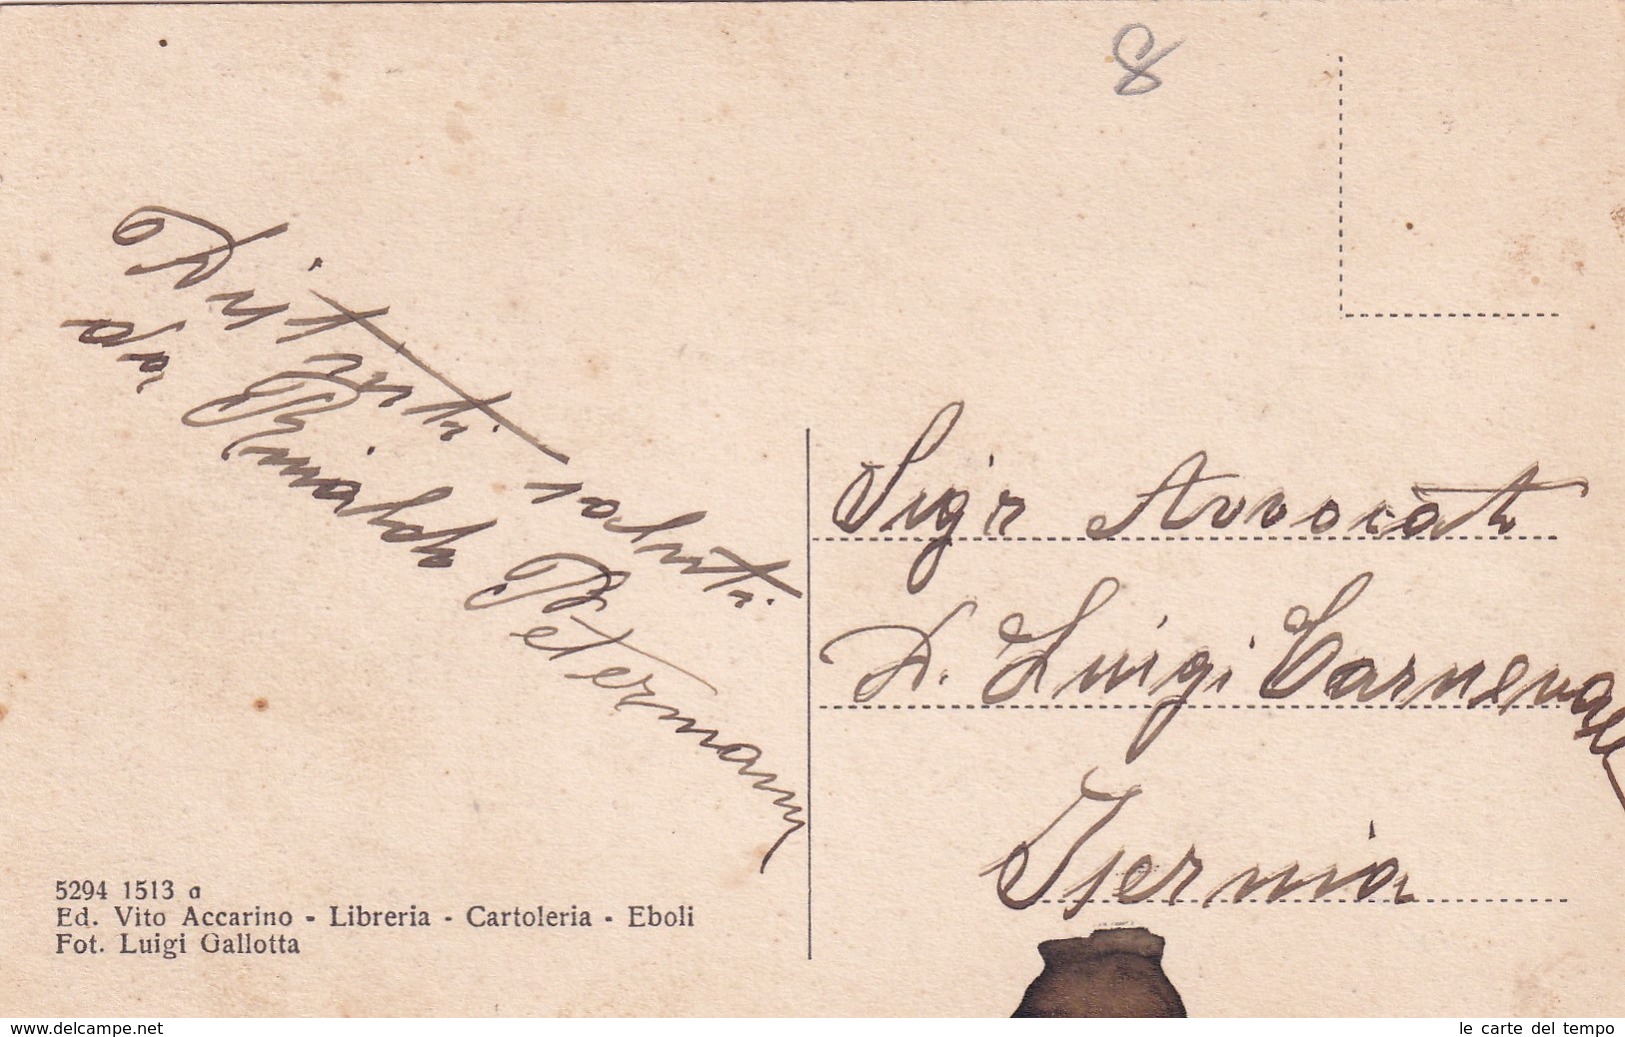 8
Distinti saluti
da Rinaldo Petermann
Sigr Avvocato
D. Luigi Carnevale
Isernia
5294 1513 a
Ed. Vito Accarino - Libreria - Cartoleria - Eboli
Fot. Luigi Gallotta
www.delcampe.net
le carte del tempo